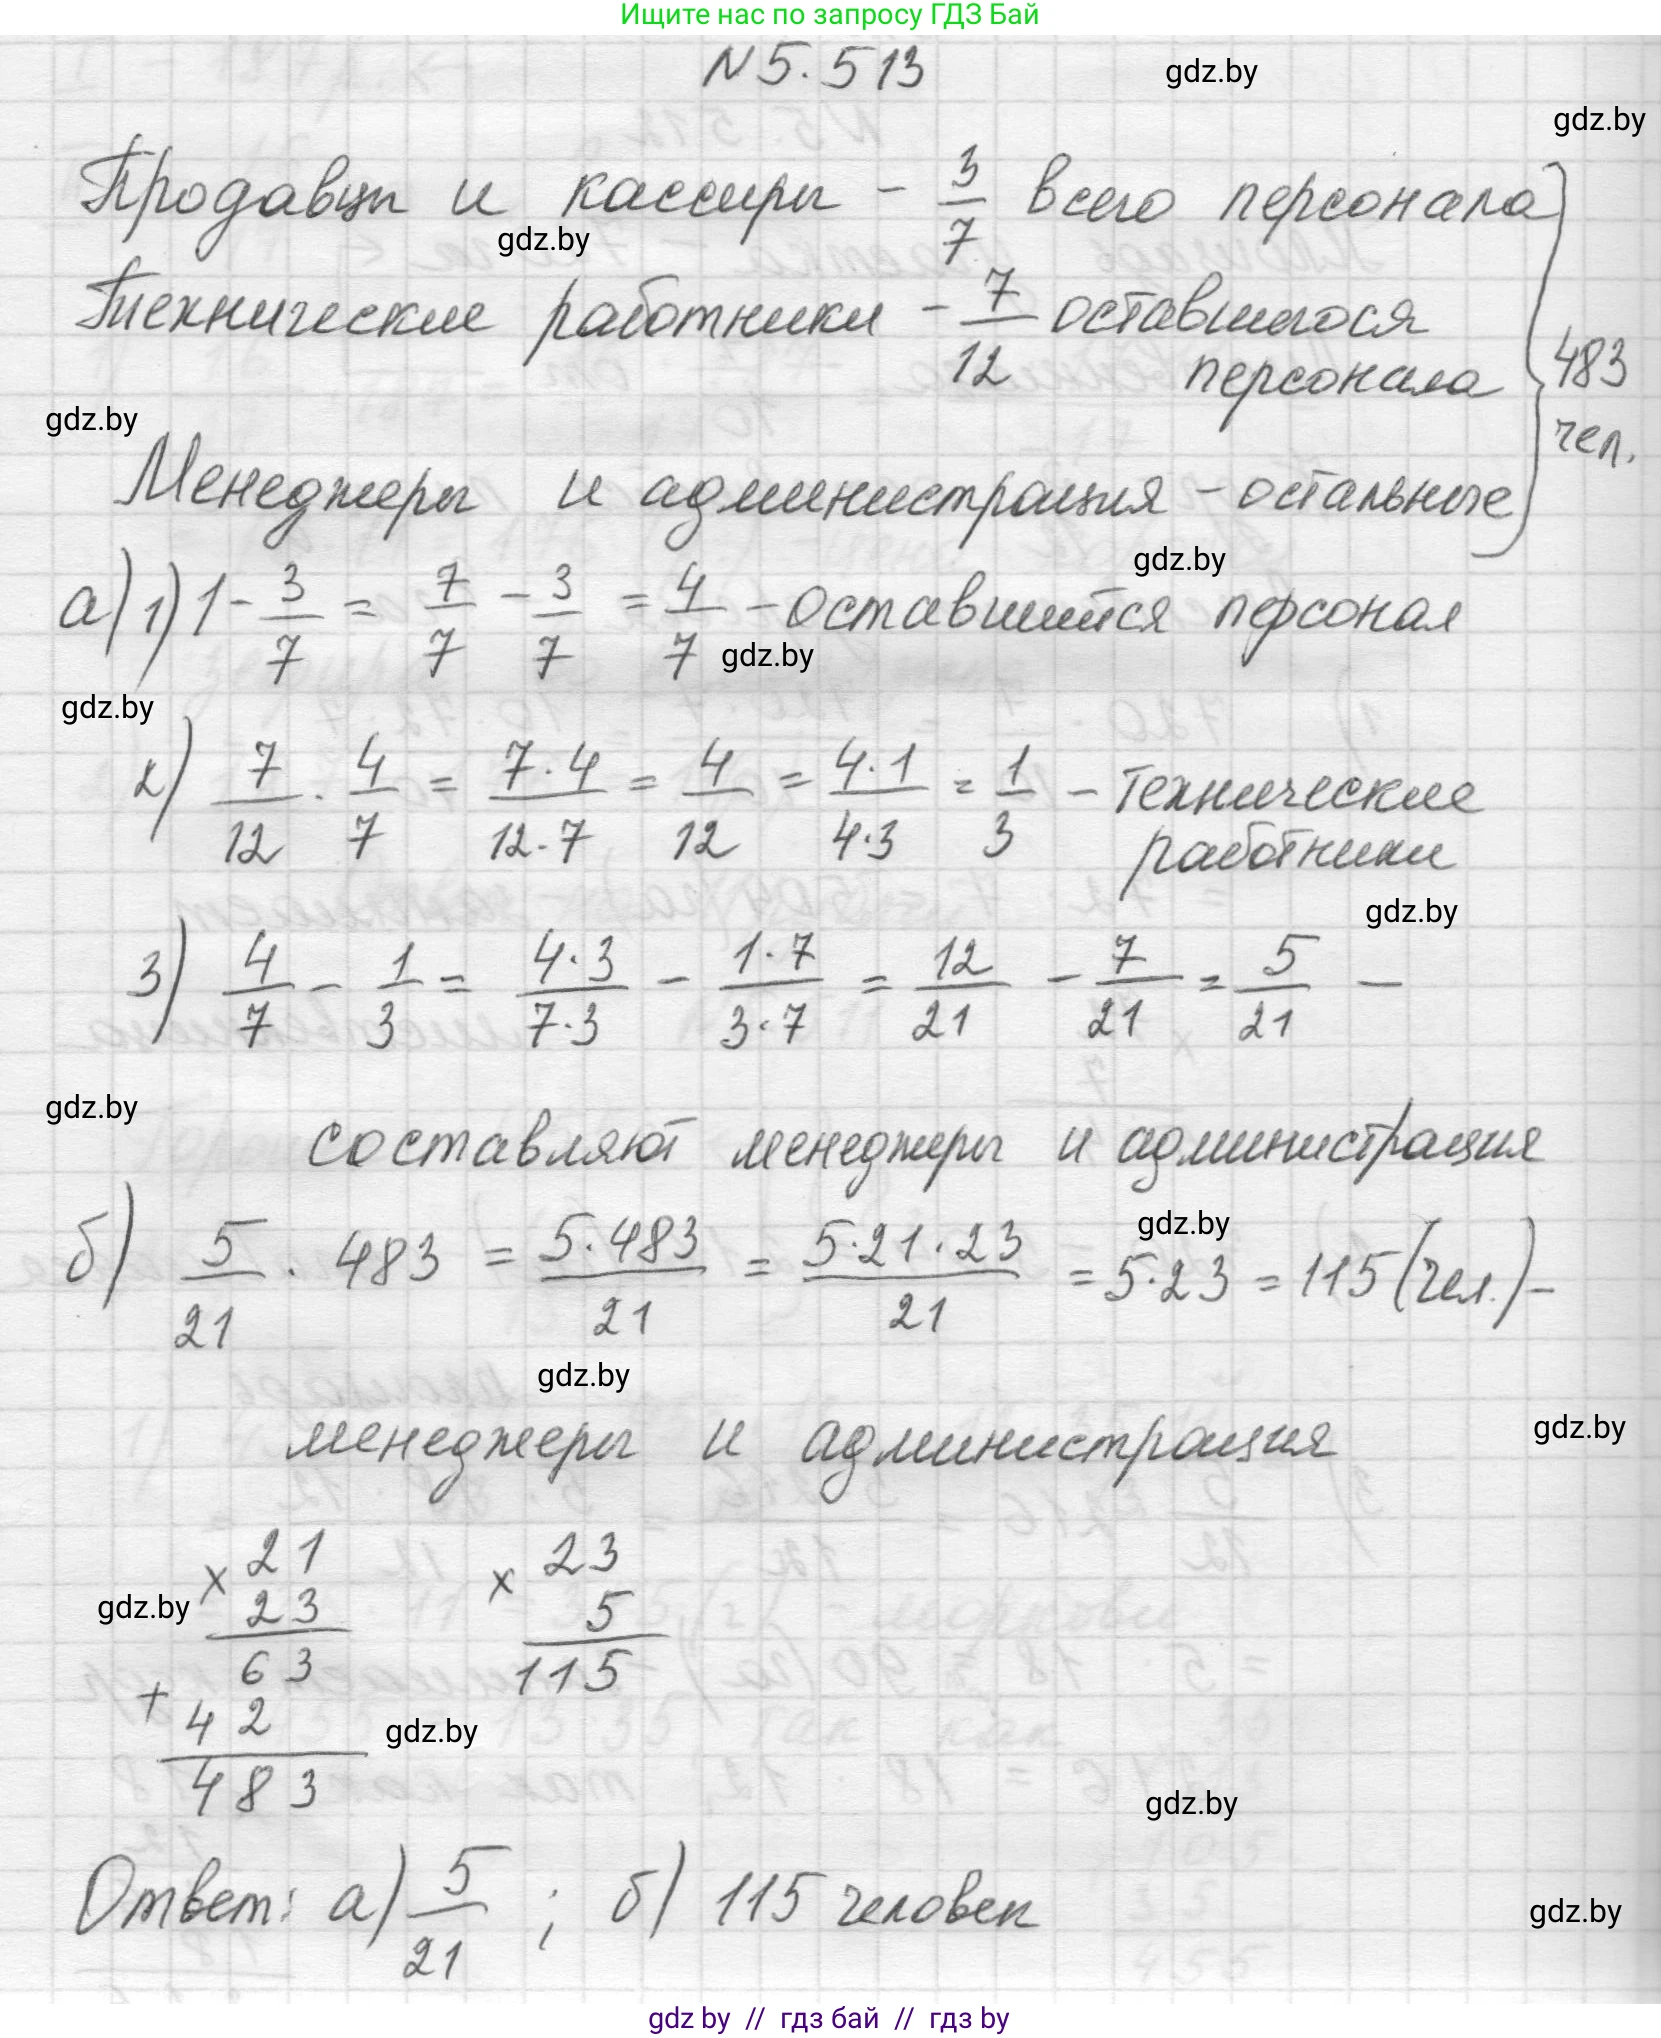 Ищите нас по запросу ГДЗ Бай
N 5.513
gdz.by
gdz.by
Продавцы и кассиры - 3/7 всего персонала
gdz.by
Технические работники - 7/12 оставшегося
персонала
483
чел.
gdz.by
Менеджеры и администрация - остальные
gdz.by
а) 1) 1 - 3/7 = 7/7 - 3/7 = 4/7 - оставшийся персонал
gdz.by
gdz.by
2) 7/12 · 4/7 = 7·4/12·7 = 4/12 = 4·1/4·3 = 1/3 - технические
работники
gdz.by
3) 4/7 - 1/3 = 4·3/7·3 - 1·7/3·7 = 12/21 - 7/21 = 5/21 -
gdz.by
составляют менеджеры и администрация
gdz.by
б) 5/21 · 483 = 5·483/21 = 5·21·23/21 = 5·23 = 115 (чел.) -
gdz.by
менеджеры и администрация
gdz.by
× 21
23
63
+ 42
483
× 23
5
115
gdz.by
gdz.by
gdz.by
Ответ: а) 5/21 ; б) 115 человек
gdz.by
gdz by // гдз бай // гдз by